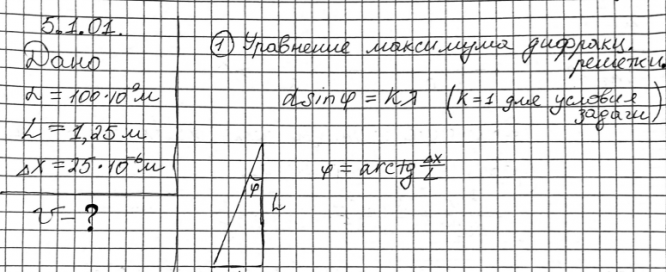 5.1.01.
Дано
d = 100·10⁻⁹ м
L = 1,25 м
Δx = 25·10⁻⁶ м
v – ?
① Уравнение максимума дифракц. решетки.
d sin φ = kλ (k=1 для условия задачи)
φ = arctg Δx/L
φ
L